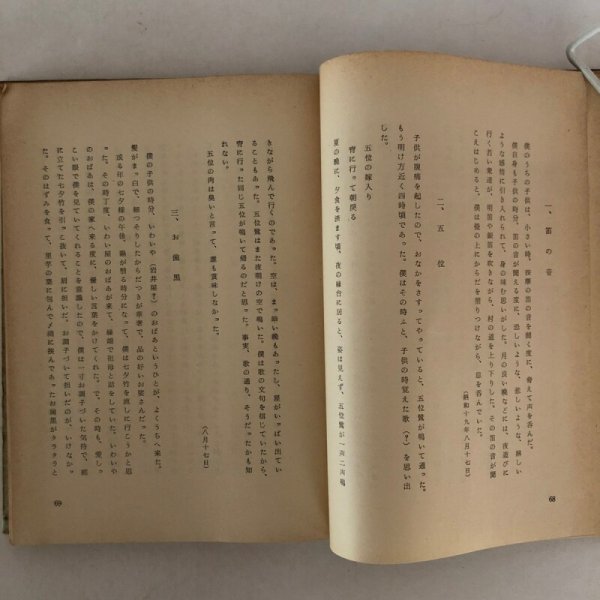 一、笛の音
僕のうちの子供は、小さい時、按摩の笛の音を聞く度に、脅えて声を呑んだ。
僕自身も子供の時分、笛の音が聞える度に、恐しいような、悲しいような、淋しい
ような感情に引き入れられて、身の味む思いがした。月の良い晩などには、夜遊びに
行く若い衆達が、明笛や銀笛を吹きながら、村の道を上り下りした。その笛の音が聞
こえはじめると、僕は後の上にからだを摺りつけながら、息を呑んでいた。
（昭和十九年八月十七日）
二、五位
子供が腹痛を起したので、おなかをさすってやっていると、五位鷺が鳴いて通った。
もう明け方近く四時頃であった。僕はその時ふと、子供の時覚えた歌（？）を思い出
した。
五位の嫁入り
宵に行って朝戻る
夏の晩に、夕食を済ます頃、夜の縁台に居ると、姿は見えず、五位鷺が一声二声鳴
68
きながら飛んで行くのであった。空は、まっ暗い晩もあったし、星がいっぱい出てい
ることもあった。五位鷺はまた夜明けの空で鳴いた。僕は歌の文句を信じていたから、
宵に行った同じ五位が鳴いて帰るのだと思った。事実、歌の通り、そうだったかも知
れない。
五位の肉は臭いと言って、誰も賞味しなかった。
（八月十七日）
三、お歯黒
僕の子供の時分、いわいや（岩井屋？）のおばあというのが、よくうちへ来た。
髪がまっ白で、細っそりしたからだつきが華奢で、品の好いお婆さんだった。
或る年の七夕様の午後、陽が翳る時分になって、僕は七夕竹を流しに行こうかと思
った。その時丁度、いわい屋のおばあが来て、縁端で祖母と話をしていた。いわいや
のおばあは、僕の家へ来る度に、優しい言葉をかけてくれた。で、その時も、愛しっ
こい眼で僕を見ていてくれることを意識したので、僕は一寸お調子づいた気持で、庭
に立てた七夕竹を引っこ抜いて、肩に担いだ。お調子づいて担いだのが、いけなかっ
た。そのはずみを食って、里芋の葉に包んで〆縄に挟んであったお歯黒がタラタラと
69